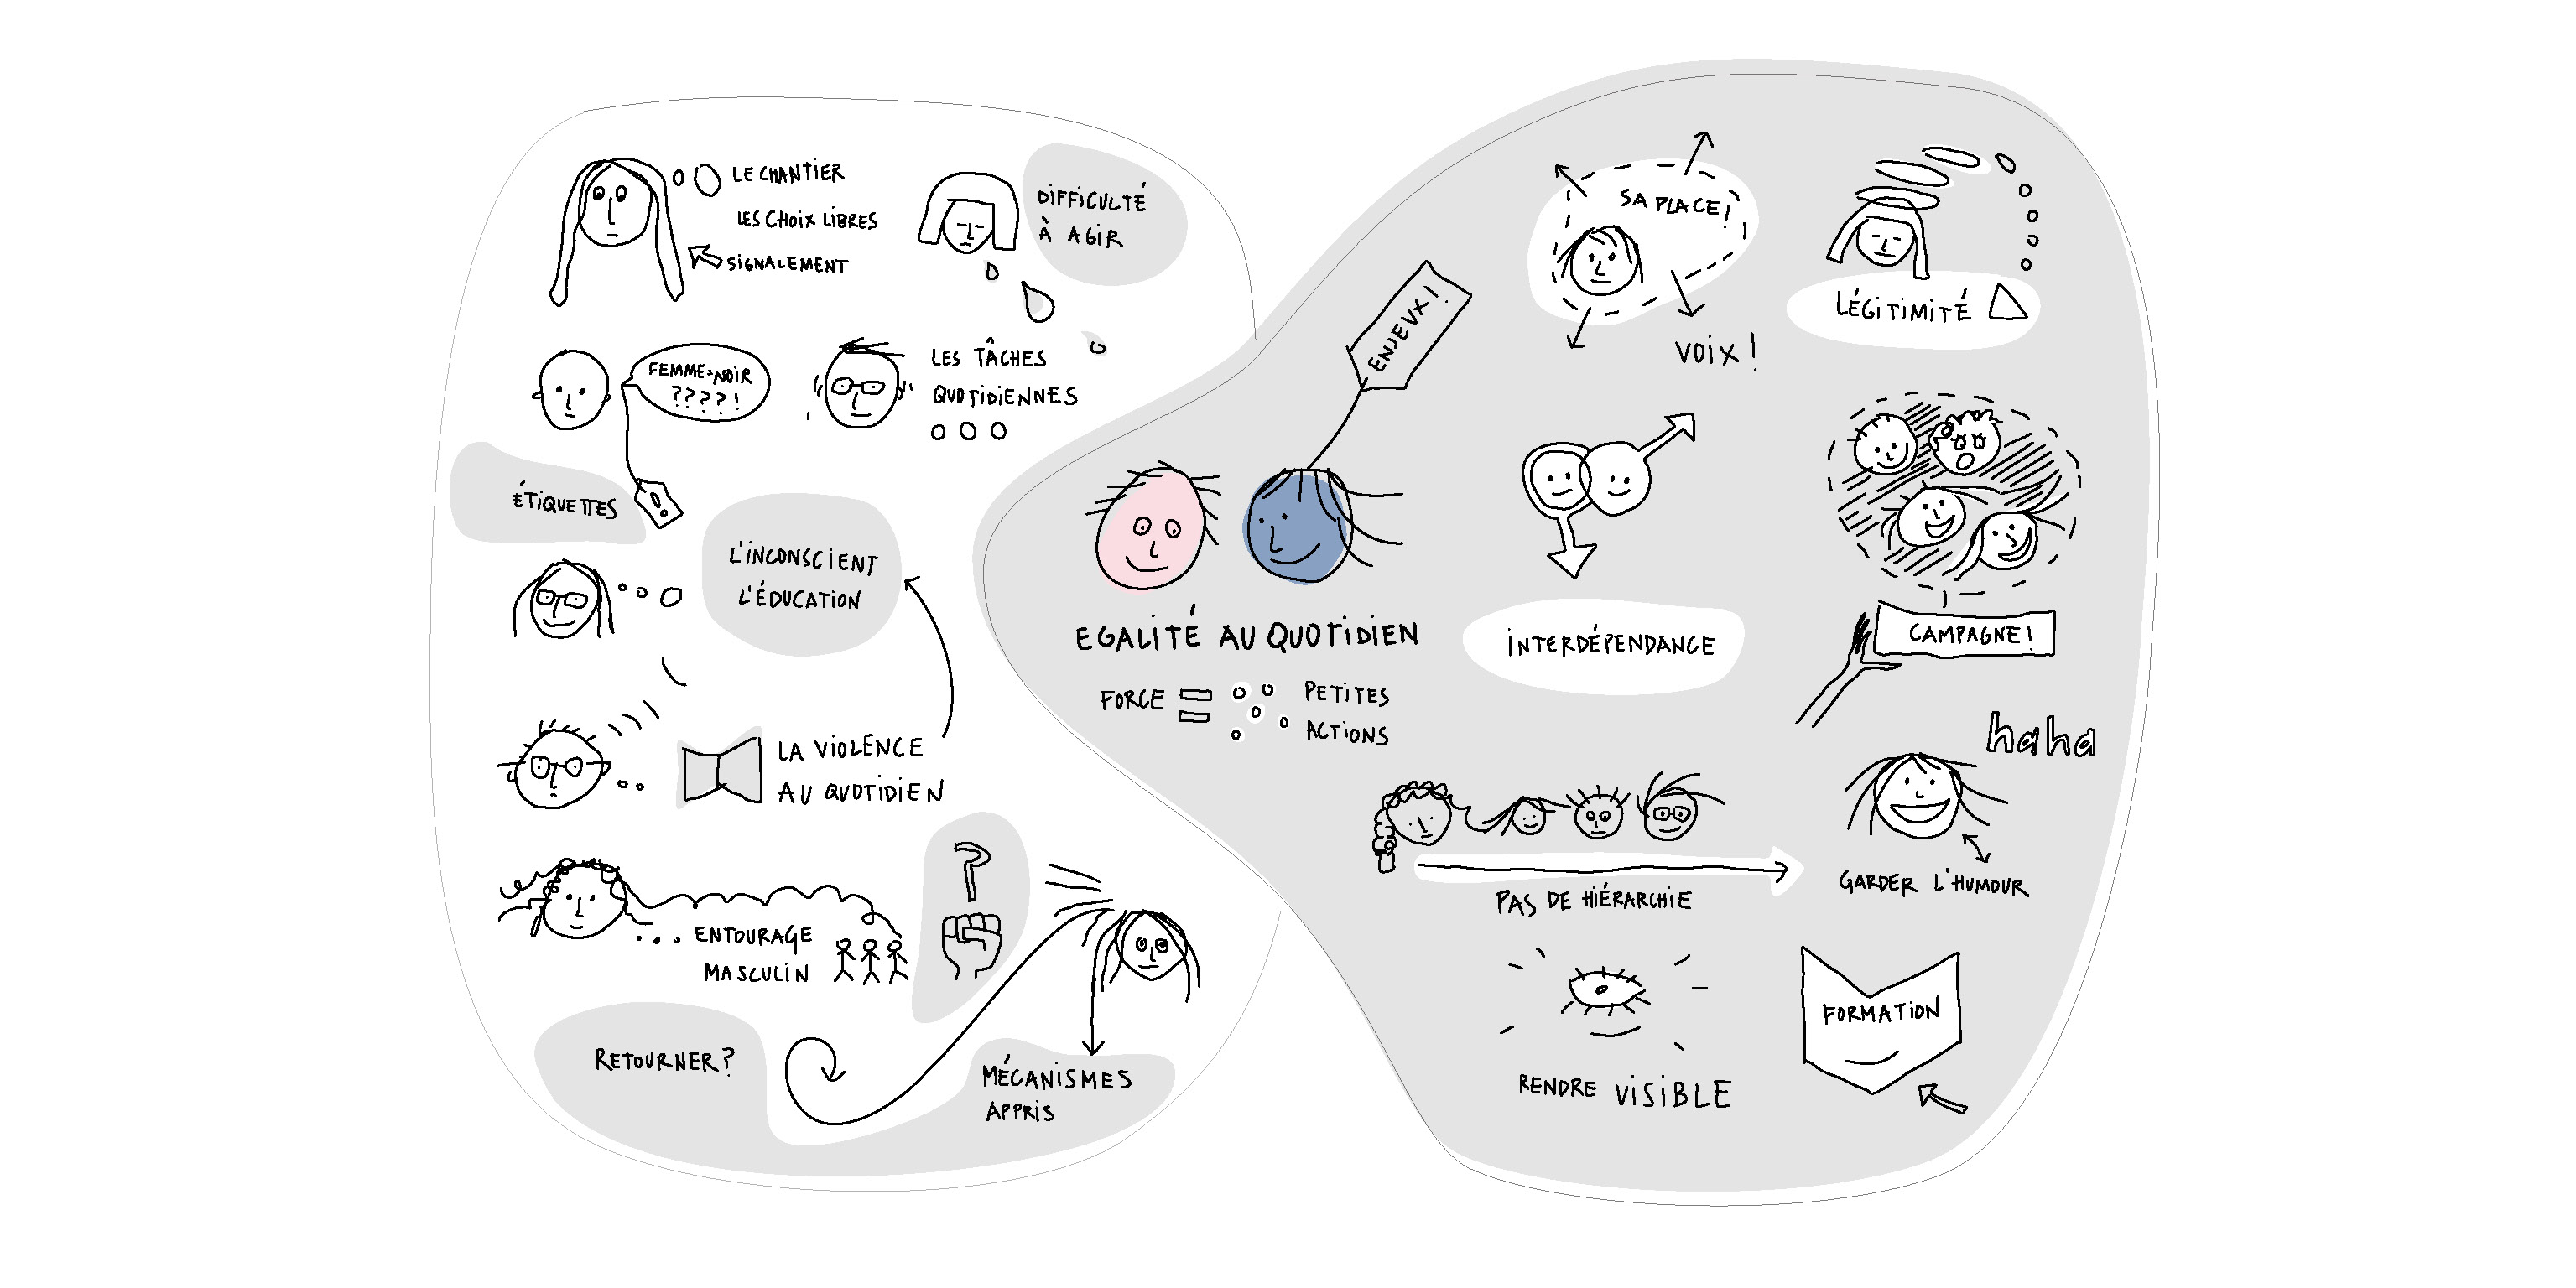 LE CHANTIER
LES CHOIX LIBRES
SIGNALEMENT
DIFFICULTÉ
À AGIR
FEMME=NOIR
????!
LES TÂCHES
QUOTIDIENNES
ÉTIQUETTES
!
L'INCONSCIENT
L'ÉDUCATION
LA VIOLENCE
AU QUOTIDIEN
... ENTOURAGE
MASCULIN
?
RETOURNER?
MÉCANISMES
APPRIS
ENJEUX!
EGALITÉ AU QUOTIDIEN
FORCE = PETITES
ACTIONS
SA PLACE!
VOIX!
LÉGITIMITÉ
INTERDÉPENDANCE
CAMPAGNE!
haha
GARDER L'HUMOUR
PAS DE HIÉRARCHIE
RENDRE VISIBLE
FORMATION